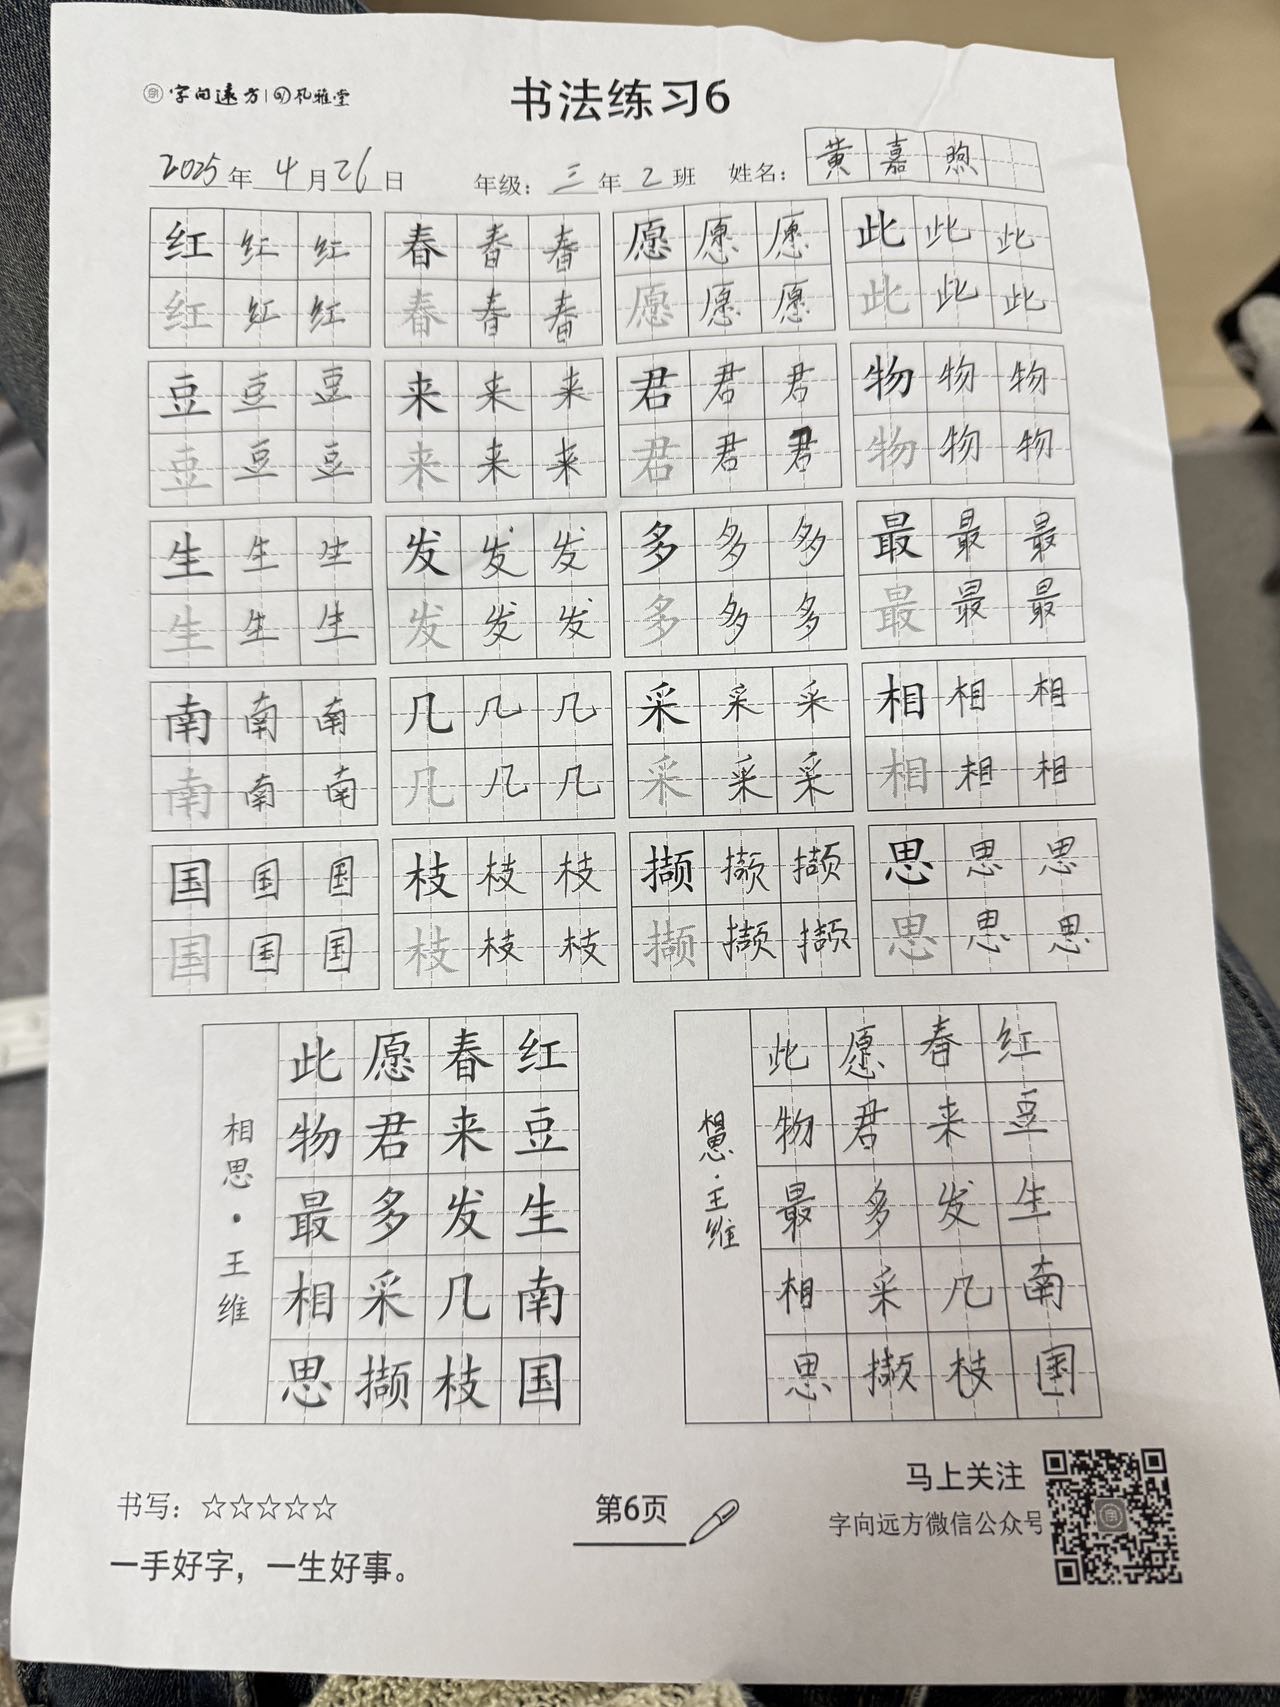 字向远方 | 孔雅堂
书法练习6
2025年4月26日 年级：三年2班 姓名：黄嘉煦
红红红 春春春 愿愿愿 此此此
红红红 春春春 愿愿愿 此此此
豆豆豆 来来来 君君君 物物物
豆豆豆 来来来 君君君 物物物
生生生 发发发 多多多 最最最
生生生 发发发 多多多 最最最
南南南 几几几 采采采 相相相
南南南 几几几 采采采 相相相
国国国 枝枝枝 撷撷撷 思思思
国国国 枝枝枝 撷撷撷 思思思
红豆生南国
春来发几枝
愿君多采撷
此物最相思
相思·王维
红豆生南国
春来发几枝
愿君多采撷
此物最相思
相思·王维
书写：☆☆☆☆☆
一手好字，一生好事。
第6页
马上关注
字向远方微信公众号